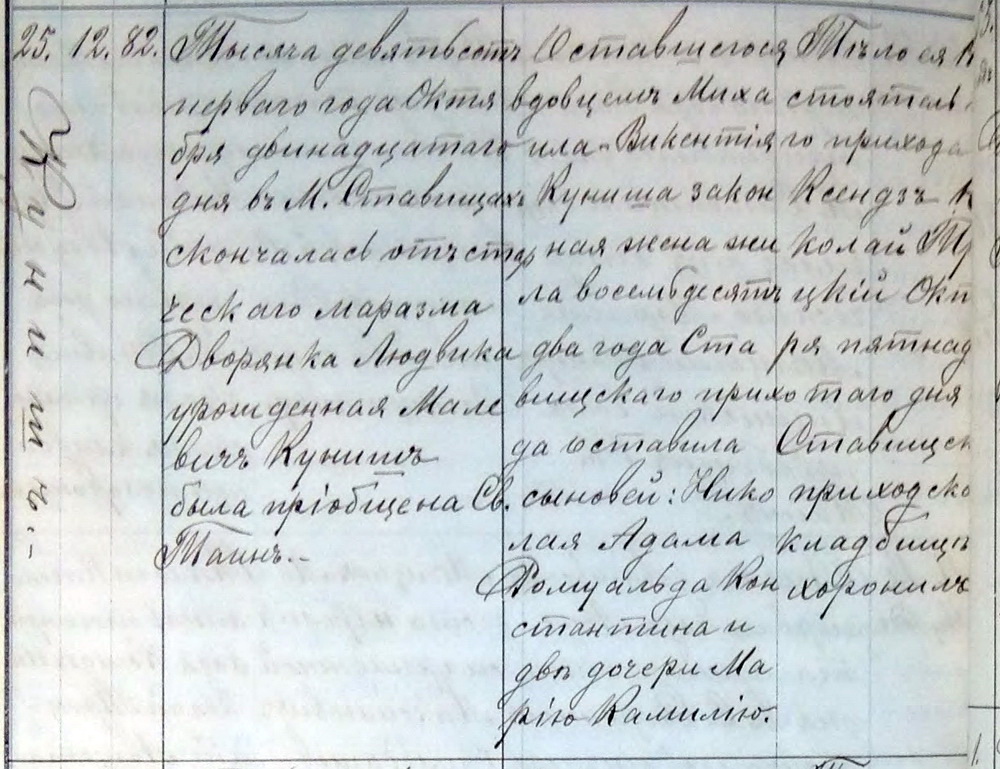 25. 12. 82.
Кунишъ.-
Тысяча девятьсотъ
перваго года Октя
бря двинадцатаго
дня въ М. Ставищахъ
скончалась отъ стар
ческаго маразма
Дворянка Людвика
урожденная Мале
вичъ Кунишъ
была пріобщена Св.
Таинъ.-
Оставшегося
вдовцемъ Миха
ила-Викентія
Куниша закон
ная жена жи
ла восемьдесятъ
два года Ста
вищскаго прихо
да оставила
сыновей: Нико
лая Адама
Ромуальда Кон
стантина и
двѣ дочери Ма
рію Камилію.
Тѣло ея
стоятель
го прихода
Ксендзъ Н
колай Тр
цкій Окт
ря пятнад
таго дня
Ставищск
приходско
кладбищѣ
хоронилъ